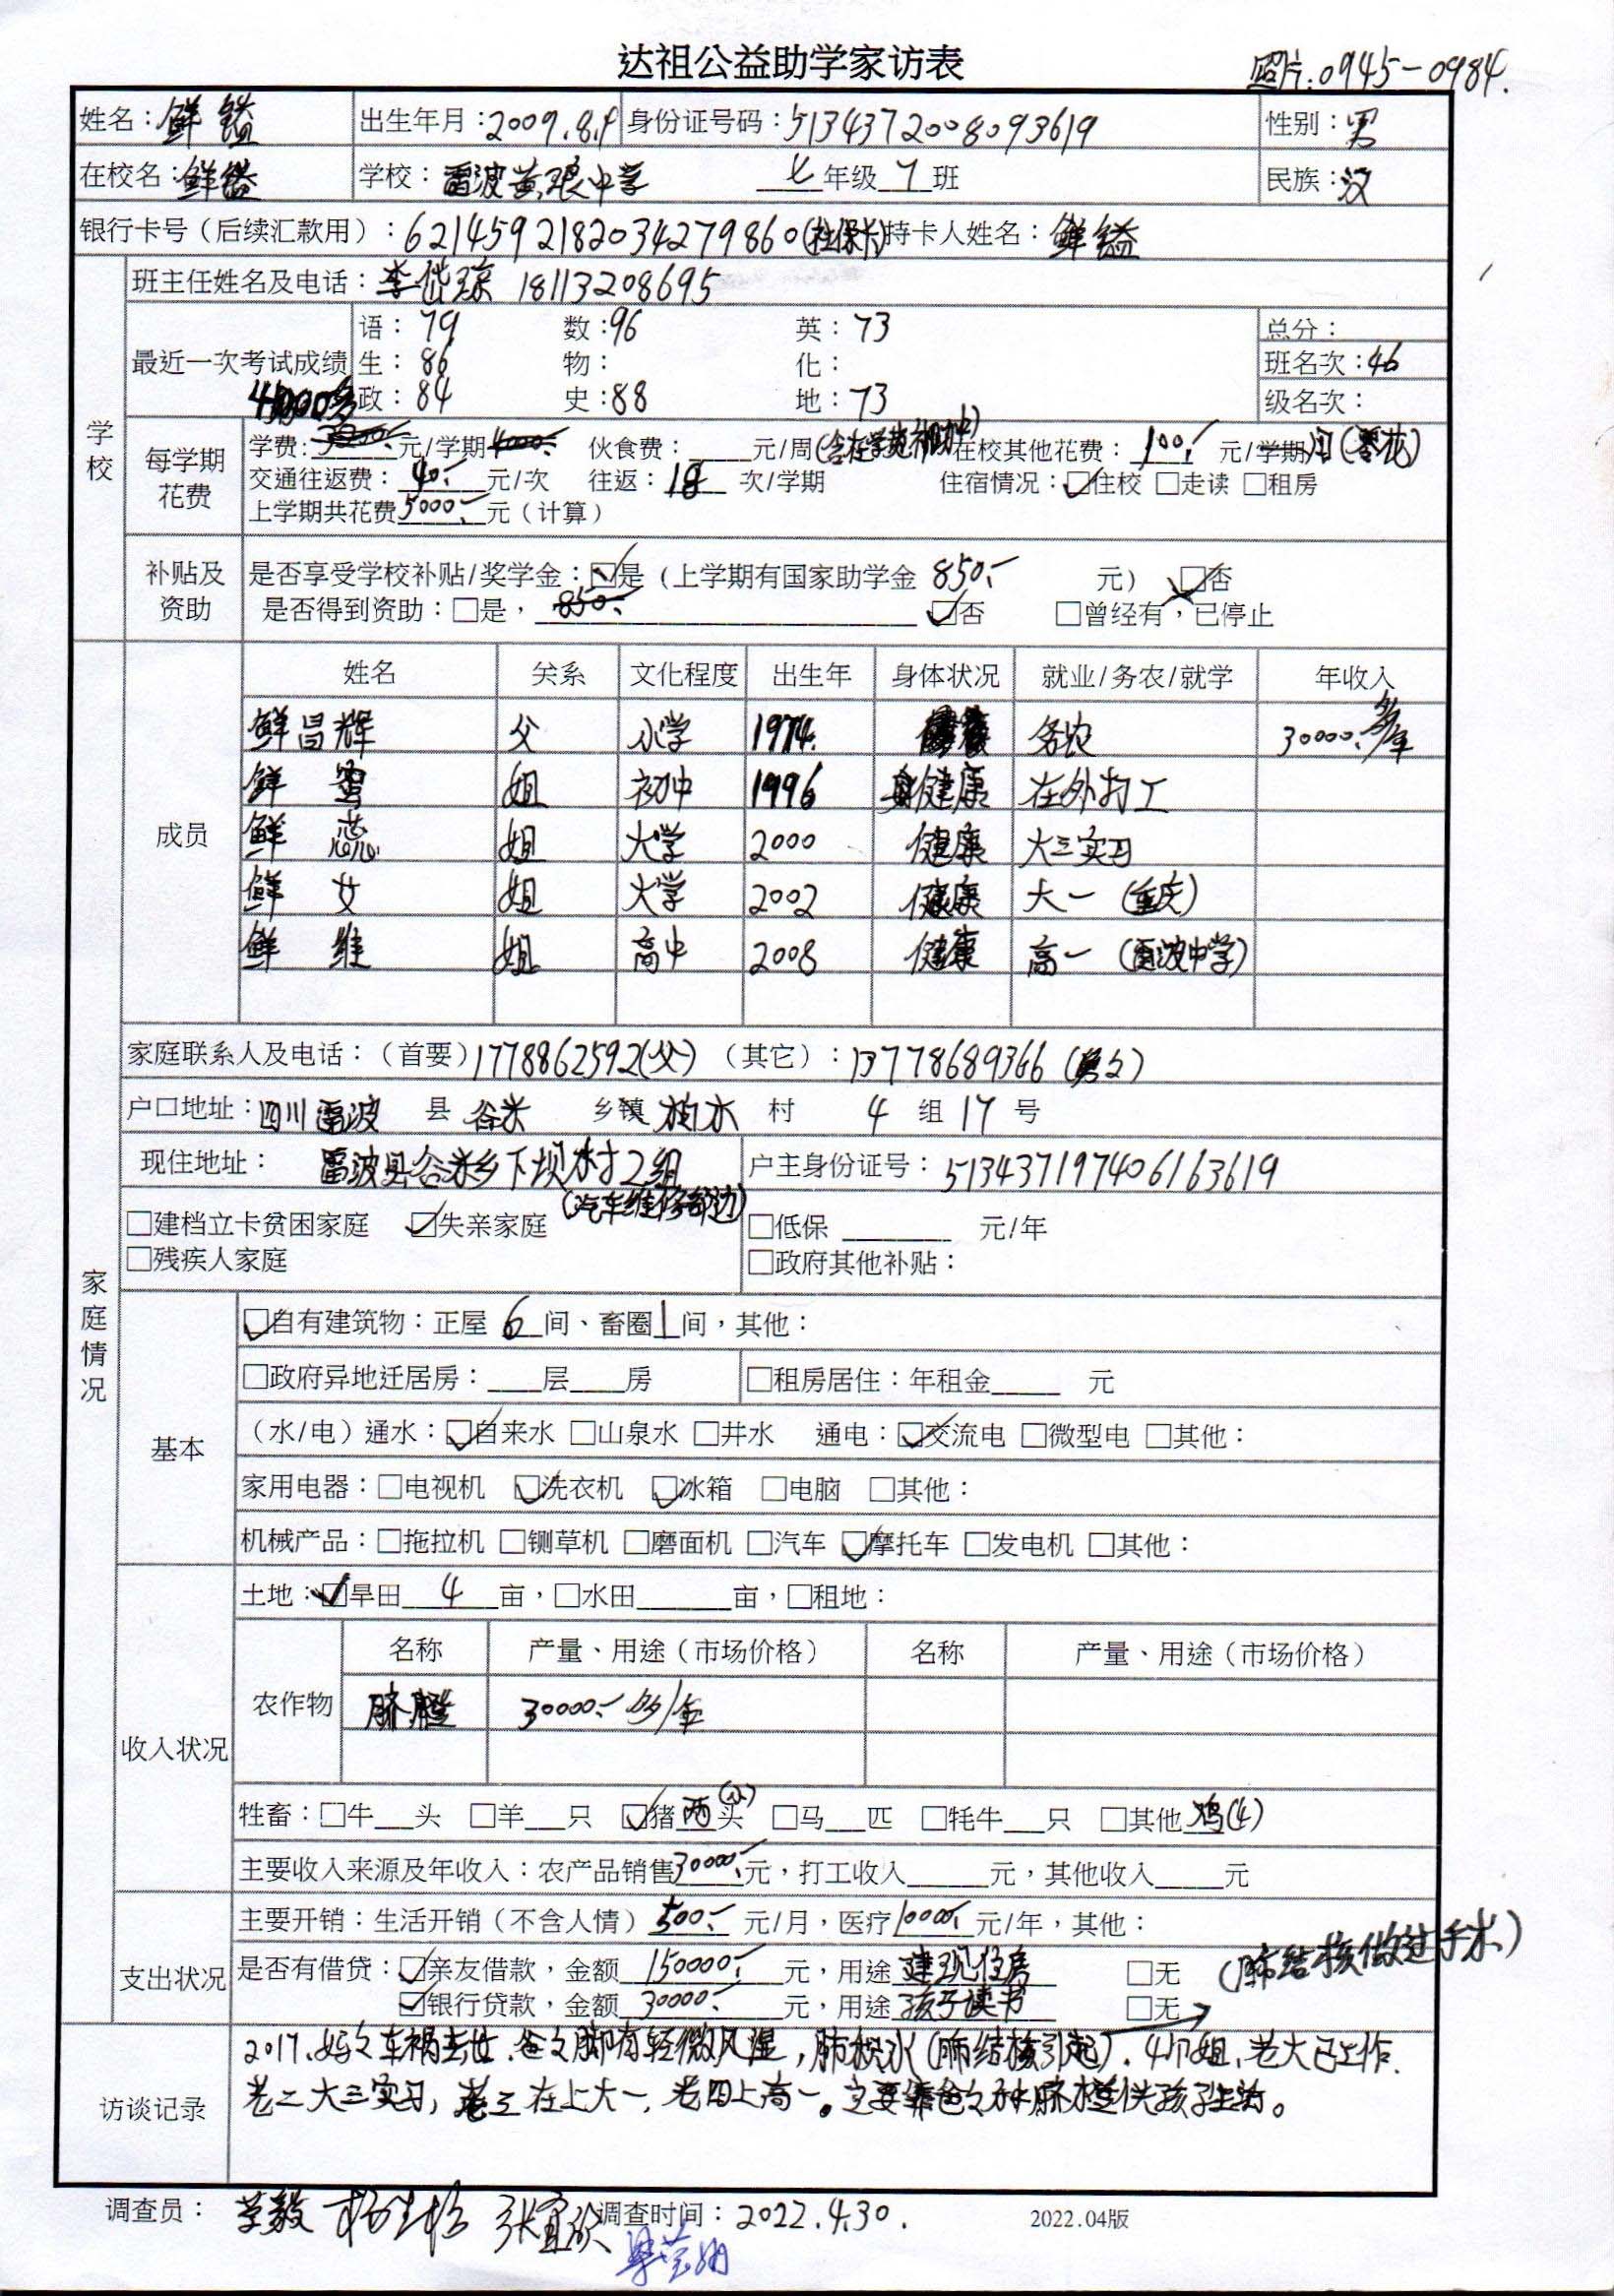 达祖公益助学家访表
照片:0945-0984.
姓名:鲜镒 出生年月:2009.8.9 身份证号码:513437200809093619 性别:男
在校名:鲜镒 学校:雷波黄琅中学 七年级7班 民族:汉
银行卡号(后续汇款用):6214592182034279860(社保卡)持卡人姓名:鲜镒
学校
班主任姓名及电话:李岱琼 18113208695
最近一次考试成绩
语:79 数:96 英:73 总分:
生:86 物: 化: 班名次:46
政:84 史:88 地:73 级名次:
4000多
每学期花费
学费: 元/学期 伙食费: 元/周 在校其他花费:100.- 元/学期 月(零花)
交通往返费:40.- 元/次 往返:18 次/学期 住宿情况:☑住校 □走读 □租房
上学期共花费5000.-元(计算)
补贴及资助
是否享受学校补贴/奖学金:☑是(上学期有国家助学金 850.- 元) □否
是否得到资助:□是,850.- ☑否 □曾经有,已停止
家庭情况
成员
姓名 关系 文化程度 出生年 身体状况 就业/务农/就学 年收入
鲜昌辉 父 小学 1974. 务农 30000.-多/年
鲜 雪 姐 初中 1996 健康 在外打工
鲜 蕊 姐 大学 2000 健康 大三实习
鲜 女 姐 大学 2002 健康 大一(重庆)
鲜 维 姐 高中 2008 健康 高一(雷波中学)
家庭联系人及电话:(首要)1778862592(父) (其它):13778689366
户口地址:四川雷波 县 谷米 乡镇 柏木 村 4 组 17 号
现住地址: 雷波县谷米乡下坝村2组 (汽车维修部边) 户主身份证号:513437197406163619
□建档立卡贫困家庭 ☑失亲家庭 □低保 元/年
□残疾人家庭 □政府其他补贴:
基本
☑自有建筑物:正屋 6 间、畜圈1间,其他:
□政府异地迁居房: 层 房 □租房居住:年租金 元
(水/电)通水:☑自来水 □山泉水 □井水 通电:☑交流电 □微型电 □其他:
家用电器:□电视机 ☑洗衣机 ☑冰箱 □电脑 □其他:
机械产品:□拖拉机 □铡草机 □磨面机 □汽车 ☑摩托车 □发电机 □其他:
收入状况
土地:☑旱田 4 亩,□水田 亩,□租地:
农作物
名称 产量、用途(市场价格) 名称 产量、用途(市场价格)
脐橙 30000.-多/年
牲畜:□牛 头 □羊 只 ☑猪 两(小)头 □马 匹 □牦牛 只 □其他 鸡(4)
主要收入来源及年收入:农产品销售30000.-元,打工收入 元,其他收入 元
支出状况
主要开销:生活开销(不含人情)500.-元/月,医疗10000.-元/年,其他:
是否有借贷:☑亲友借款,金额 150000.- 元,用途 建现住房 □无 (肺结核做过手术)
☑银行贷款,金额 30000.- 元,用途 孩子读书 □无
访谈记录
2017.妈々车祸去世.爸々脚有轻微风湿,肺积水(肺结核引起).4个姐,老大已工作.
老二大三实习,老三在上大一,老四上高一。主要靠爸々种脐橙供孩子生活。
调查员: 调查时间:2022.4.30. 2022.04版